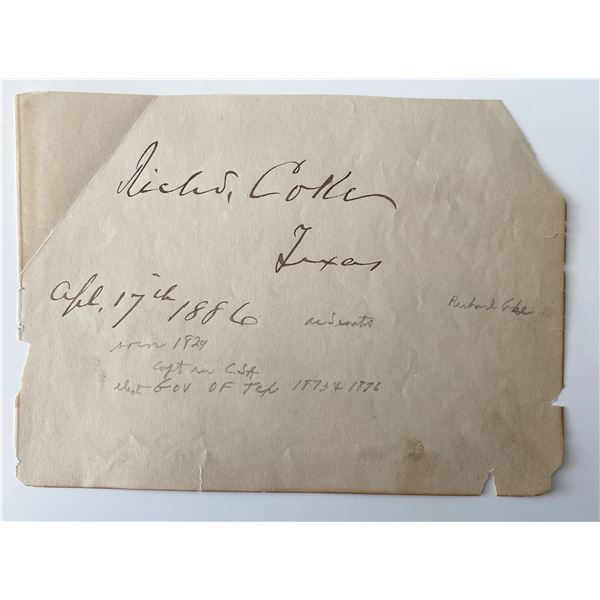 Richd. Coke
Texas
Apl. 17th 1886
as Senator
Richard Coke
born 1829
Capt in CSA
elect GOV OF Tex 1873 & 1876